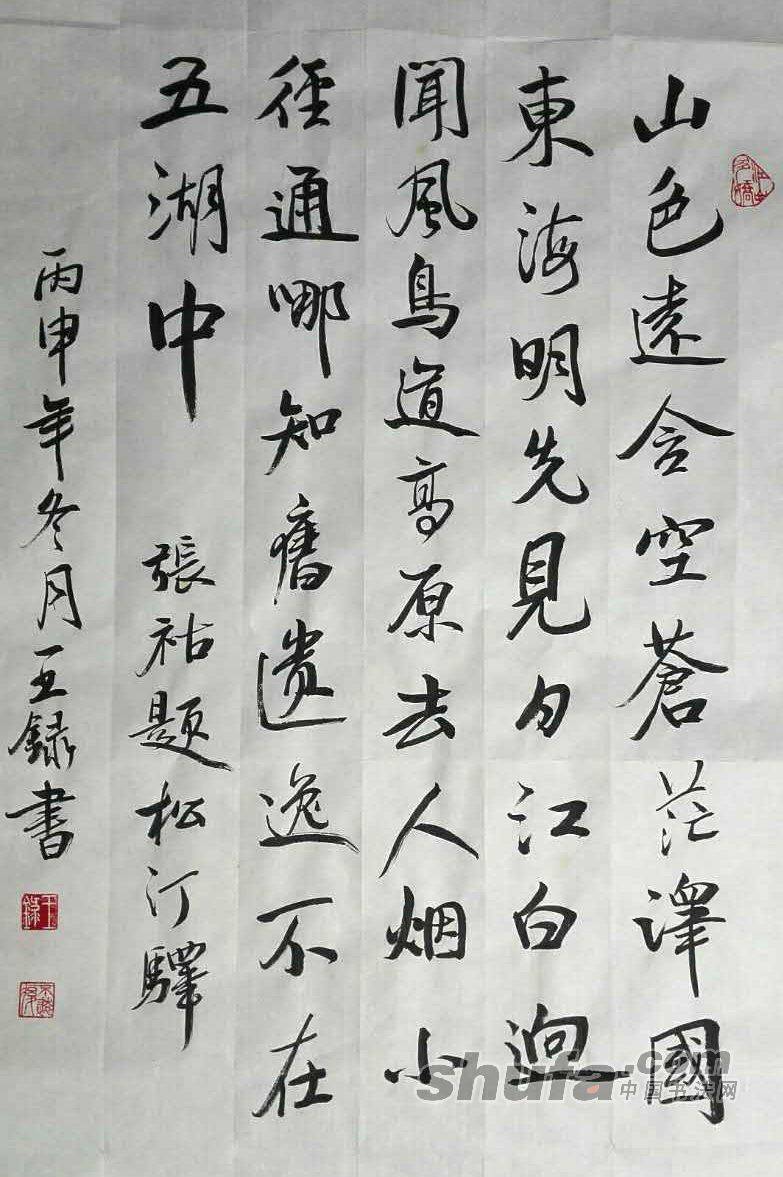 山色遠含空蒼茫澤國
東海明先見日江白迥
聞風鳥道高原去人烟小
徑通哪知舊遗逸不在
五湖中 張祜题松汀驛
丙申年冬月王録書
shufa.com
中国书法网